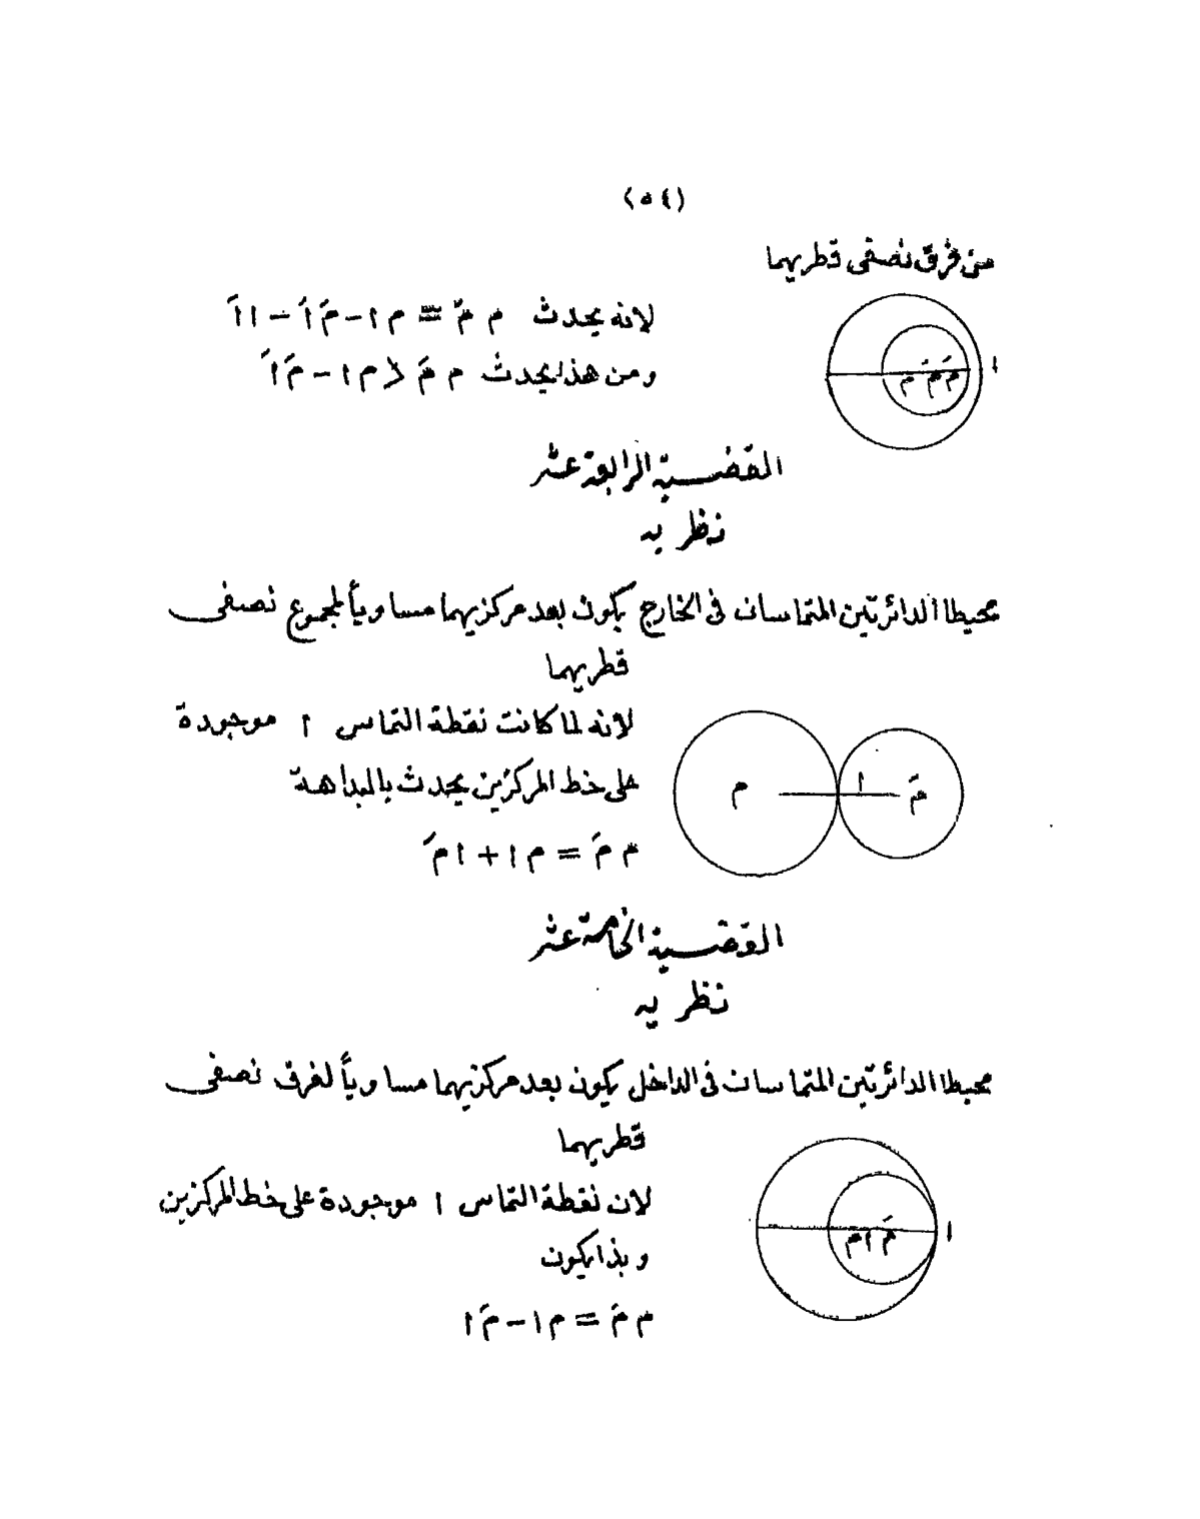 (٥٤)
من فرق نصفى قطريهما
لانه يحدث م مَ = م ا - مَ اَ - ا اَ
ا
م مَ مَ
ومن هذا يحدث م مَ < م ا - مَ اَ
القضية الرابعة عشر
نظريه
محيطا الدائرتين المتماسان فى الخارج يكون بعد مركزيهما مساوياً لمجموع نصفى
قطريهما
لانه لما كانت نقطة التماس ا موجودة
على خط المركزين يحدث بالبداهة
م ا مَ
م مَ = م ا + ا مَ
القضية الخامسة عشر
نظريه
محيطا الدائرتين المتماسان فى الداخل يكون بعد مركزيهما مساوياً لفرق نصفى
قطريهما
لان نقطة التماس ا موجودة على خط المركزين
م ا مَ
ا
وبذا يكون
م مَ = م ا - مَ ا